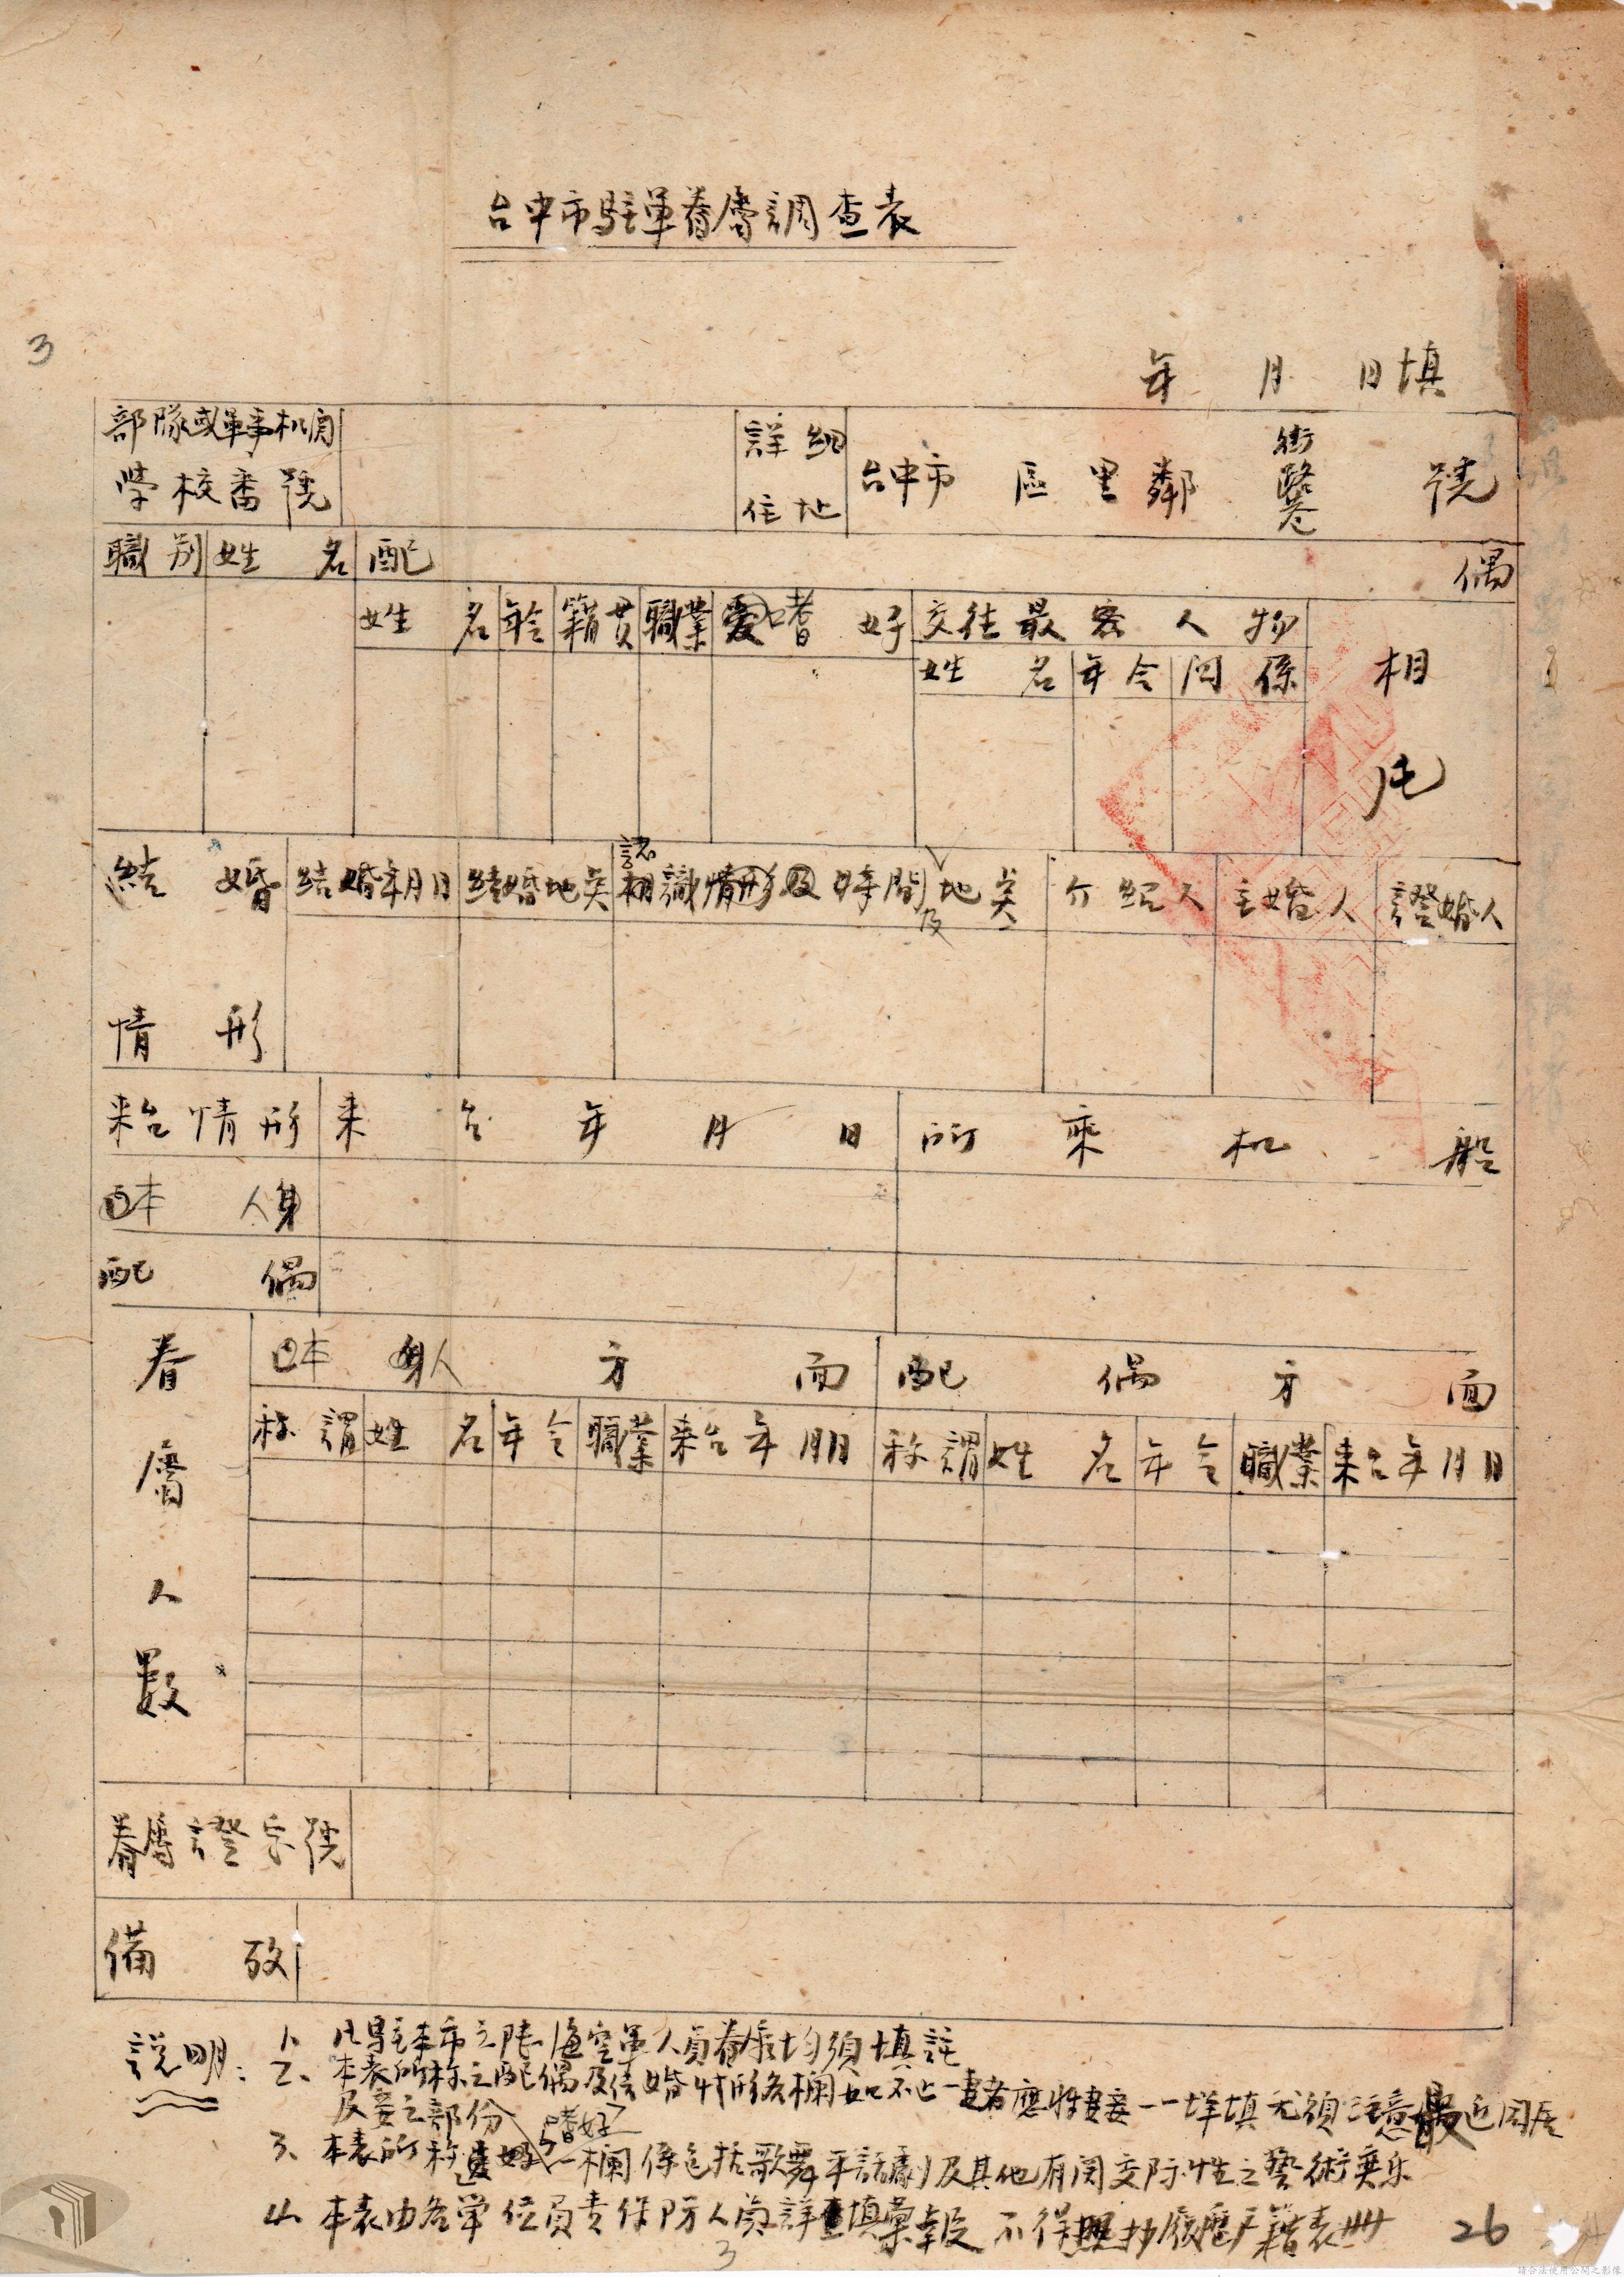 台中市駐軍眷屬調查表
3
年 月 日填
部隊或軍事机関
学校番號
詳細
住址
台中市 區 里 鄰 街路巷 號
職別 姓 名 配 偶
姓 名 年令 籍貫 職業 嗜 好 交往最密人物 相
姓 名 年令 関係
片
結 婚 結婚年月日 結婚地奌 認識時間及地奌 介紹人 主婚人 證婚人
情 形
来台情形 来 台 年 月 日 所 乘 机 船
本 人
配 偶
眷 屬 人 數
本 人 方 面 配 偶 方 面
称謂 姓 名 年令 職業 来台年月日 称謂 姓 名 年令 職業 来台年月日
眷屬證字號
備 攷
說明：
1、凡駐本市之陸海空軍人員眷属均須填註
2、本表所称之配偶及结婚情形各欄如不止一妻者應将妻妾一一详填尤須注意最近同居
及妾之部份
3、本表所称嗜好一欄係包括歌舞平話劇及其他有関交际性之藝術樂乐
4、本表由各單位負責保防人員詳查填彙報不得照抄履歷户籍表册
26
3
請合法使用公開之影像